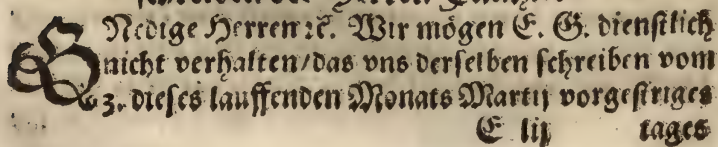 GNedige Herren ꝛc. Wir mögen E. G. dienstlich
nicht verhalten/das vns derselben schreiben vom
3. dieses lauffenden Monats Martij vorgestriges
E iij tages